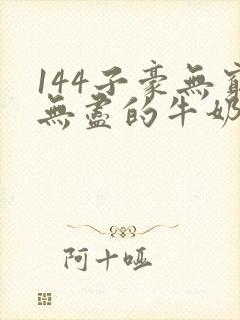 144子豪無窮
無盡的牛奶
阿十啞